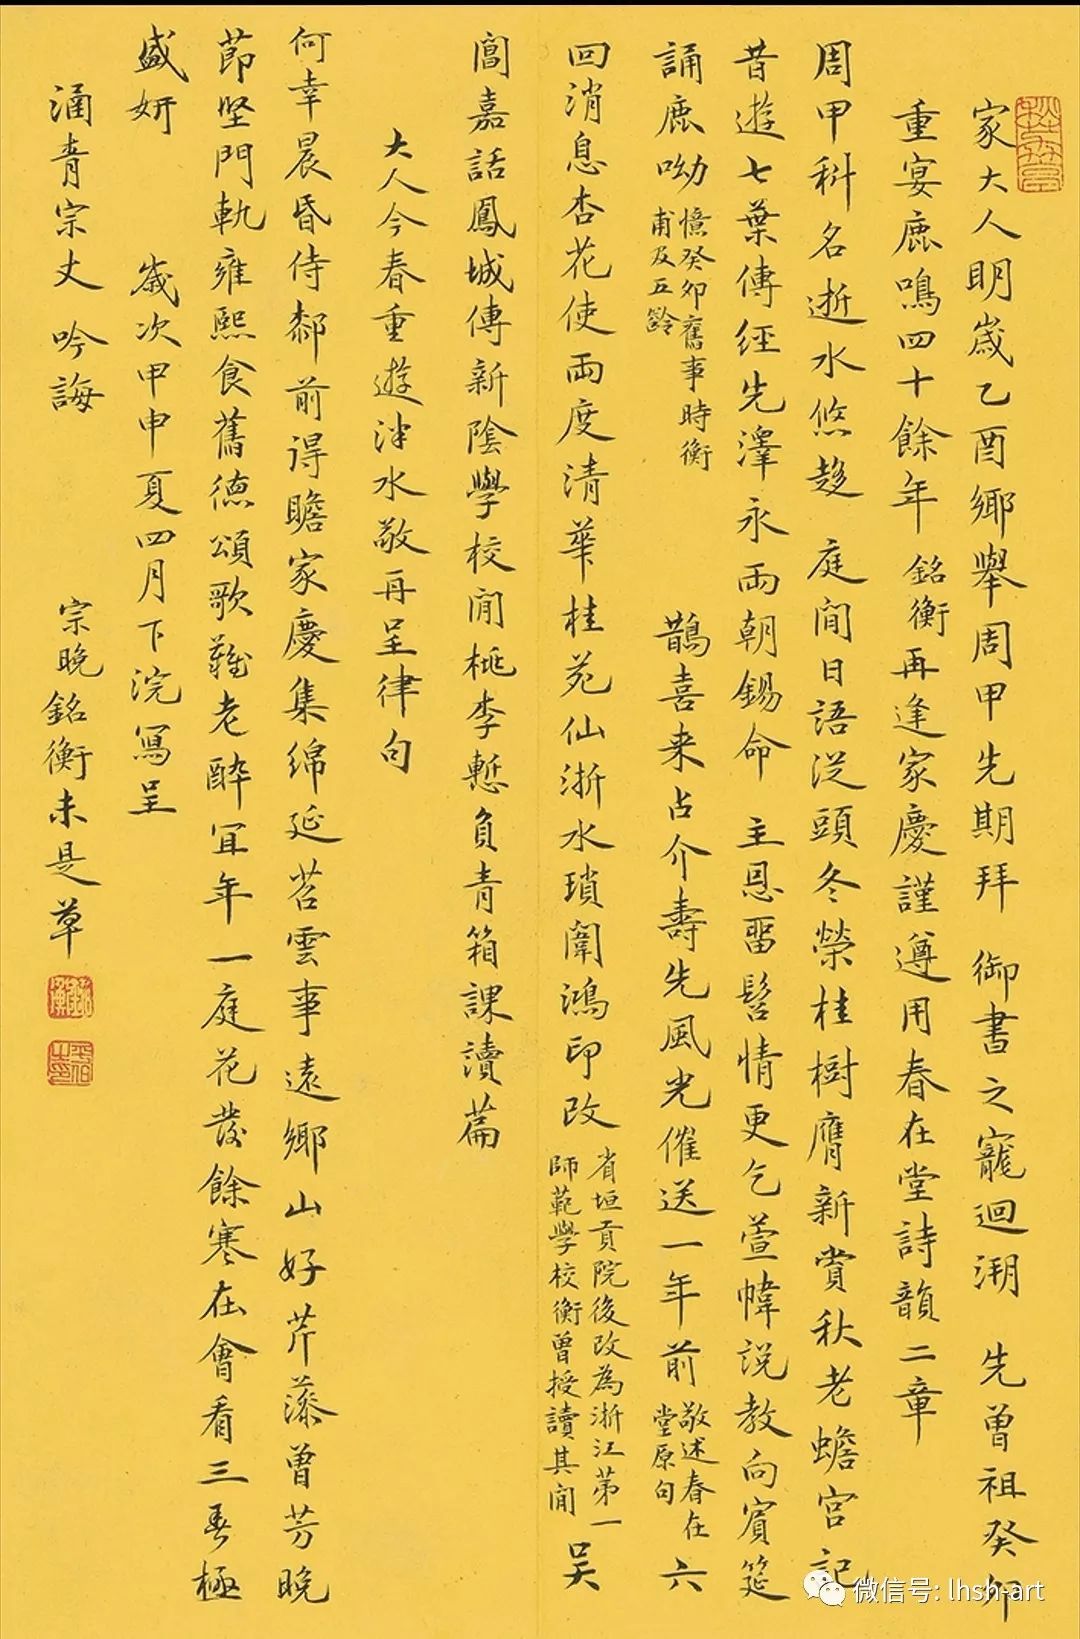 家大人明歲乙酉鄉舉周甲先期拜 御書之寵迴溯 先曾祖癸卯
重宴鹿鳴四十餘年銘衡再逢家慶謹遵用春在堂詩韻二章
周甲科名逝水悠趍 庭閒日語從頭冬榮桂樹膺新賞秋老蟾宮記
昔遊七葉傳經先澤永兩朝錫命 主恩畱髫情更乞萱幃說教向賓筵
誦鹿呦
憶癸卯舊事時衡
甫及五齡
鵲喜来占介壽先風光催送一年前
敬述春在
堂原句
六
回消息杏花使兩度清華桂苑仙浙水瑣闈鴻印改
省垣貢院後改為浙江第一
師範學校衡曾授讀其閒
吴
閶嘉話鳳城傳新陰學校閒桃李慙負青箱課讀篇
大人今春重遊泮水敬再呈律句
何幸晨昏侍郯前得瞻家慶集綿延苕雲事遠鄉山好芹藻曾芳晚
節堅門軌雍熙食舊德頌歌難老酔宜年一庭花發餘寒在會看三春極
盛妍 歲次甲申夏四月下浣寫呈
涵青宗丈吟誨 宗晚銘衡未是草
微信号: lhsh-art